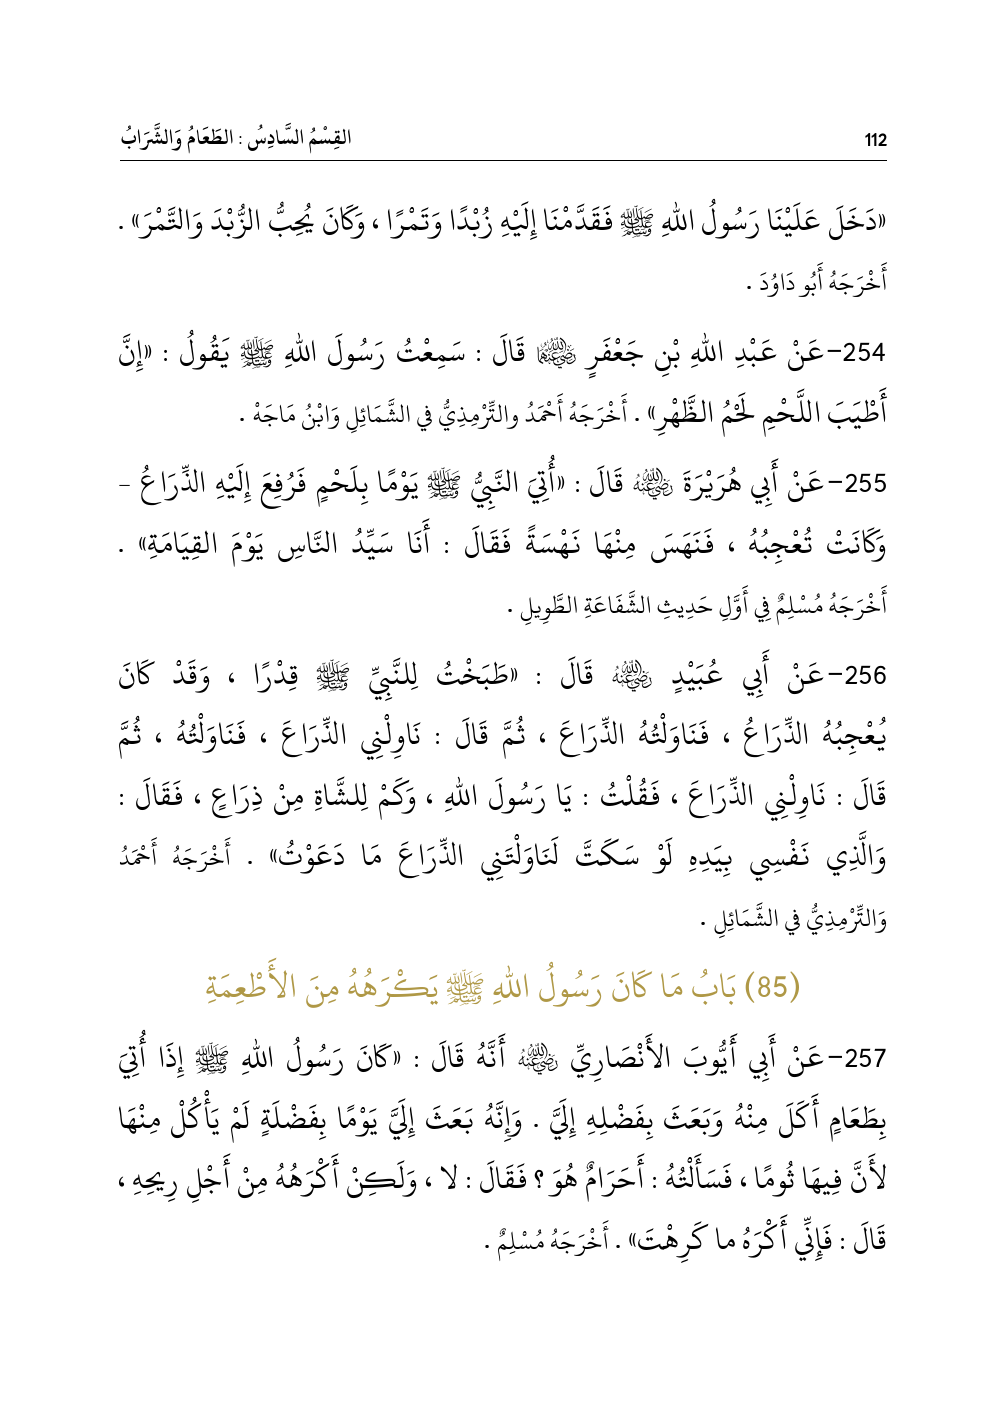 112 القِسْمُ السَّادِسُ : الطَعَامُ وَالشَّرَابُ
«دَخَلَ عَلَيْنَا رَسُولُ اللهِ ﷺ فَقَدَّمْنَا إِلَيْهِ زُبْدًا وَتَمْرًا ، وَكَانَ يُحِبُّ الزُّبْدَ وَالتَّمْرَ» .
أَخْرَجَهُ أَبُو دَاوُدَ .
254–عَنْ عَبْدِ اللهِ بْنِ جَعْفَرٍ رضي الله عنهما قَالَ : سَمِعْتُ رَسُولَ اللهِ ﷺ يَقُولُ : «إِنَّ
أَطْيَبَ اللَّحْمِ لَحْمُ الظَّهْرِ» . أَخْرَجَهُ أَحْمَدُ والتِّرْمِذِيُّ في الشَّمَائِلِ وَابْنُ مَاجَهْ .
255–عَنْ أَبِي هُرَيْرَةَ رضي الله عنه قَالَ : «أُتِيَ النَّبِيُّ ﷺ يَوْمًا بِلَحْمٍ فَرُفِعَ إِلَيْهِ الذِّرَاعُ –
وَكَانَتْ تُعْجِبُهُ ، فَنَهَسَ مِنْهَا نَهْسَةً فَقَالَ : أَنَا سَيِّدُ النَّاسِ يَوْمَ القِيَامَةِ» .
أَخْرَجَهُ مُسْلِمٌ فِي أَوَّلِ حَدِيثِ الشَّفَاعَةِ الطَّوِيلِ .
256–عَنْ أَبِي عُبَيْدٍ رضي الله عنه قَالَ : «طَبَخْتُ لِلنَّبِيِّ ﷺ قِدْرًا ، وَقَدْ كَانَ
يُعْجِبُهُ الذِّرَاعُ ، فَنَاوَلْتُهُ الذِّرَاعَ ، ثُمَّ قَالَ : نَاوِلْنِي الذِّرَاعَ ، فَنَاوَلْتُهُ ، ثُمَّ
قَالَ : نَاوِلْنِي الذِّرَاعَ ، فَقُلْتُ : يَا رَسُولَ اللهِ ، وَكَمْ لِلشَّاةِ مِنْ ذِرَاعٍ ، فَقَالَ :
وَالَّذِي نَفْسِي بِيَدِهِ لَوْ سَكَتَّ لَنَاوَلْتَنِي الذِّرَاعَ مَا دَعَوْتُ» . أَخْرَجَهُ أَحْمَدُ
وَالتِّرْمِذِيُّ في الشَّمَائِلِ .
(85) بَابُ مَا كَانَ رَسُولُ اللهِ ﷺ يَكْرَهُهُ مِنَ الأَطْعِمَةِ
257–عَنْ أَبِي أَيُّوبَ الأَنْصَارِيِّ رضي الله عنه أَنَّهُ قَالَ : «كَانَ رَسُولُ اللهِ ﷺ إِذَا أُتِيَ
بِطَعَامٍ أَكَلَ مِنْهُ وَبَعَثَ بِفَضْلِهِ إِلَيَّ . وَإِنَّهُ بَعَثَ إِلَيَّ يَوْمًا بِفَضْلَةٍ لَمْ يَأْكُلْ مِنْهَا
لأَنَّ فِيهَا ثُومًا ، فَسَأَلْتُهُ : أَحَرَامٌ هُوَ ؟ فَقَالَ : لا ، وَلَكِنْ أَكْرَهُهُ مِنْ أَجْلِ رِيحِهِ ،
قَالَ : فَإِنِّي أَكْرَهُ ما كَرِهْتَ» . أَخْرَجَهُ مُسْلِمٌ .